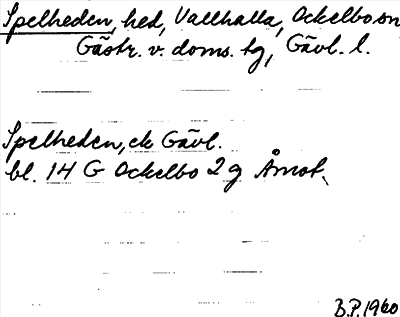 Spelheden, hed, Vallhalla, Ockelbo sn
Gästr. v. doms. tg, Gävl. l.
Spelheden, ek Gävl.
bl. 14 G Ockelbo 2 g Åmot.
B.P. 1960